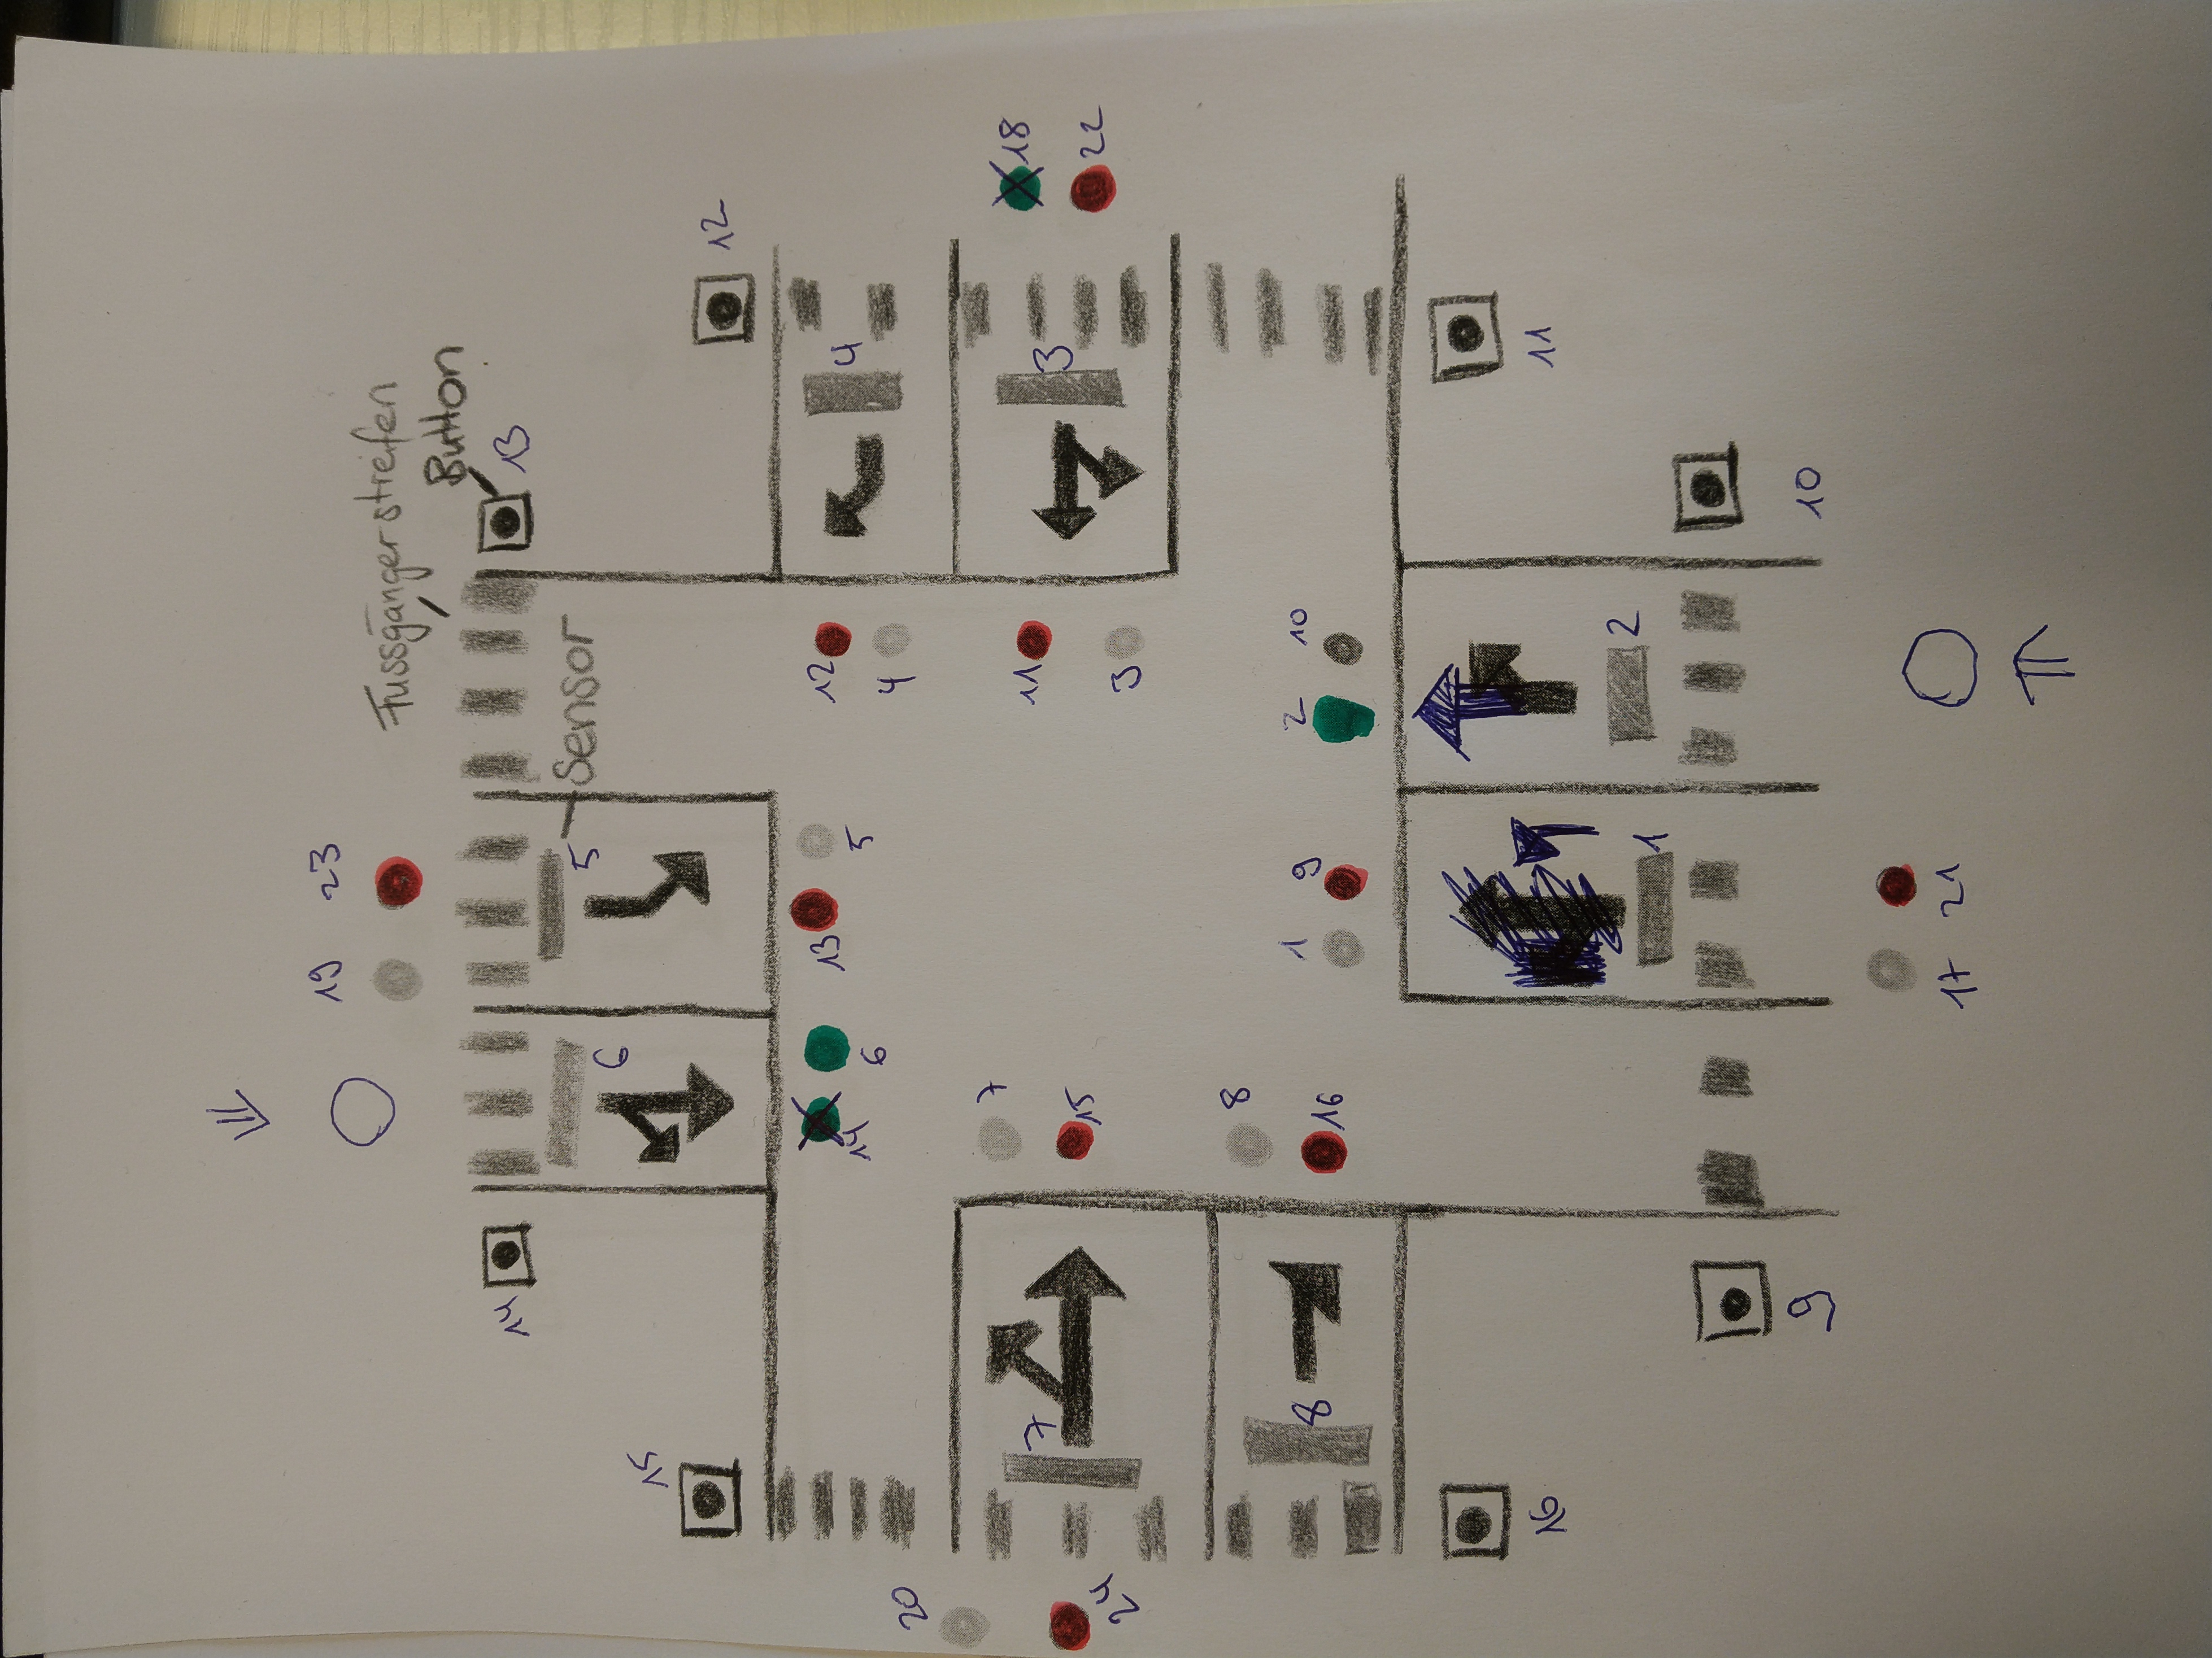 19 23
Fussgängerstreifen
Button
14 13
5 Sensor
6
15
12
12 4
14 6 13 5
4
20
7
7
11 3 18
24 15
3 22
8
8 16
1 9 2 10
16 11
1 2
9 10
17 21